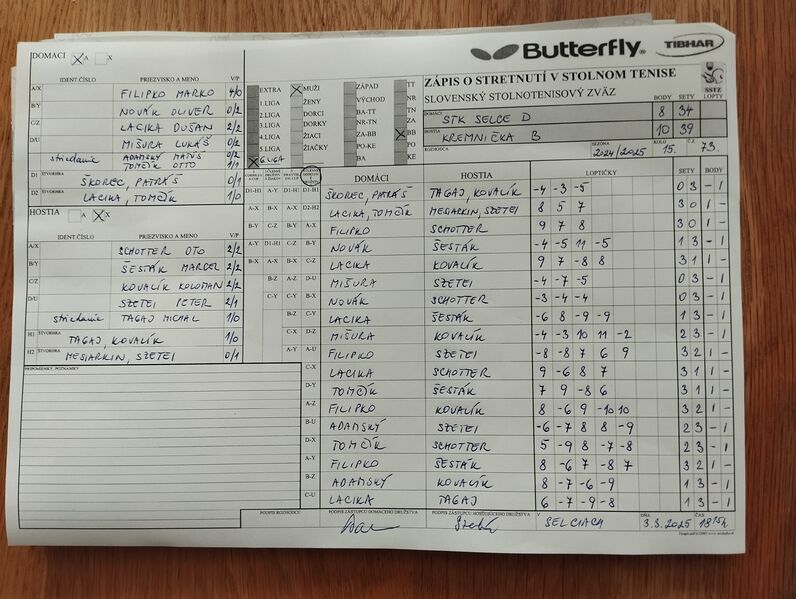 DOMACI X A X
Butterfly
TIBHAR
IDENT.ČÍSLO PRIEZVISKO A MENO V/P
A/X FILIPKO MARKO 4/0
B/Y NOVÁK OLIVER 0/2
C/Z LACIKA DUŠAN 2/2
D/U MIŠURA LUKÁŠ 0/2
striedanie ADAMSKÝ MATÚŠ 0/2
TOMČÍK OTTO 1/1
D1 ŠTVORHRA ŠKOREC, PATRÁŠ 0/1
D2 ŠTVORHRA LACIKA, TOMČÍK 1/0
EXTRA X MUŽI ZÁPAD TT
1.LIGA ŽENY VÝCHOD NR
2.LIGA DORCI BA-TT TN
3.LIGA DORKY NR-TN ZA
4.LIGA ŽIACI ZA-BB X BB
5.LIGA ŽIAČKY PO-KE PO
X 6.LIGA BA KE
ZÁPIS O STRETNUTÍ V STOLNOM TENISE
SLOVENSKÝ STOLNOTENISOVÝ ZVÄZ
SSTZ
BODY SETY LOPTY
DOMÁCI STK SELCE D 8 34
HOSTIA KREMNIČKA B 10 39
ROZHODCA SEZÓNA 2024/2025 KOLO 15. Č.Z. 73
HOSTIA A X X
IDENT.ČÍSLO PRIEZVISKO A MENO V/P
A/X SCHOTTER OTO 2/2
B/Y ŠESTÁK MARCEL 2/2
C/Z KOVALÍK KOLOMAN 2/2
D/U SZETEI PETER 2/1
striedanie TAGAJ MICHAL 1/0
H1 ŠTVORHRA TAGAJ, KOVALÍK 1/0
H2 ŠTVORHRA MESIARKIN, SZETEI 0/1
PRIPOMIENKY, POZNÁMKY
DOMÁCI HOSTIA LOPTIČKY SETY BODY
D1-H1 A-Y D1-H1 D1-H1 ŠKOREC, PATRÁŠ TAGAJ, KOVALÍK -4 -3 -5 0 3 - 1
A-X B-X A-X D2-H2 LACIKA, TOMČÍK MESIARKIN, SZETEI 8 5 7 3 0 1 -
B-Y C-Z B-Y A-X FILIPKO SCHOTTER 9 7 8 3 0 1 -
A-Y D1-H1 C-Z B-Y NOVÁK ŠESTÁK -4 -5 11 -5 1 3 - 1
B-X A-X A-Y C-Z LACIKA KOVALÍK 9 7 -8 8 3 1 1 -
B-Z A-Z D-U MIŠURA SZETEI -4 -7 -5 0 3 - 1
C-Y C-Y B-X NOVÁK SCHOTTER -3 -4 -4 0 3 - 1
B-Z C-Y LACIKA ŠESTÁK -6 8 -9 -9 1 3 - 1
C-X D-Z MIŠURA KOVALÍK -4 -3 10 11 -2 2 3 - 1
A-Y A-U FILIPKO SZETEI -8 -8 7 6 9 3 2 1 -
C-X LACIKA SCHOTTER 9 -6 8 7 3 1 1 -
D-Y TOMČÍK ŠESTÁK 7 9 -8 6 3 1 1 -
A-Z FILIPKO KOVALÍK 8 -6 9 -10 10 3 2 1 -
B-U ADAMSKÝ SZETEI -6 -7 8 8 -9 2 3 - 1
D-X TOMČÍK SCHOTTER 5 -9 8 -7 -8 2 3 - 1
A-Y FILIPKO ŠESTÁK 8 -6 7 -8 7 3 2 1 -
B-Z ADAMSKÝ KOVALÍK 8 -7 -6 -9 1 3 - 1
C-U LACIKA TAGAJ 6 -7 -9 -8 1 3 - 1
PODPIS ROZHODCU PODPIS ZÁSTUPCU DOMÁCEHO DRUŽSTVA PODPIS ZÁSTUPCU HOSŤUJÚCEHO DRUŽSTVA V SELCIACH DŇA 3.3.2025 ČAS 18 15h